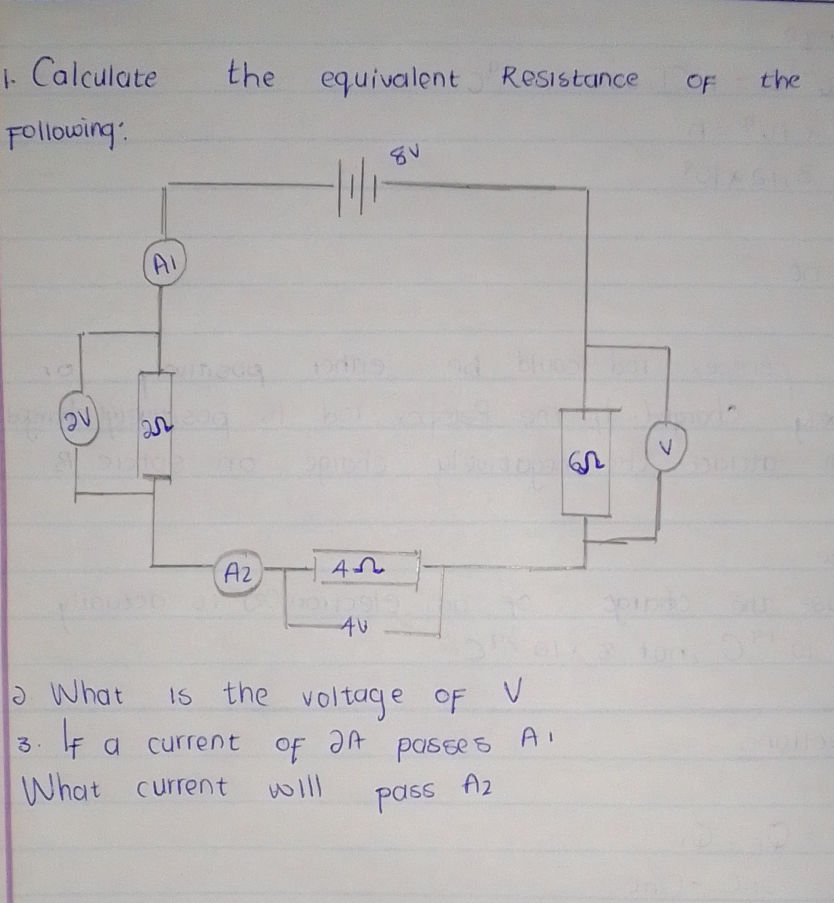 1. Calculate the equivalent Resistance of the
Following:
8V
A1
2V
2Ω
6Ω
V
A2
4Ω
4V
2 What is the voltage of V
3. If a current of 2A passes A1
What current will pass A2